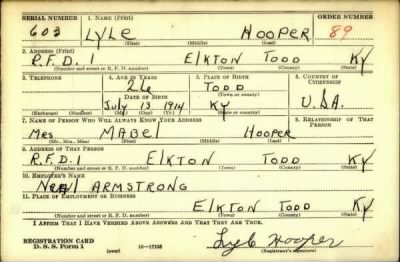 SERIAL NUMBER 1. NAME (Print) ORDER NUMBER
603 LYLE HOOPER 89
(First) (Middle) (Last)
2. ADDRESS (Print)
R.F.D. 1 ELKTON TODD KY
(Number and street or R. F. D. number) (Town) (County) (State)
3. TELEPHONE 4. AGE IN YEARS 5. PLACE OF BIRTH 6. COUNTRY OF CITIZENSHIP
26 TODD
(Town or county)
DATE OF BIRTH
July 13 1914 KY U.S.A.
(Exchange) (Number) (Mo.) (Day) (Yr.) (State or country)
7. NAME OF PERSON WHO WILL ALWAYS KNOW YOUR ADDRESS 8. RELATIONSHIP OF THAT PERSON
Mrs MABEL HOOPER
(Mr., Mrs., Miss) (First) (Middle) (Last)
9. ADDRESS OF THAT PERSON
R.F.D. 1 ELKTON TODD KY
(Number and street or R. F. D. number) (Town) (County) (State)
10. EMPLOYER'S NAME
ARMSTRONG
11. PLACE OF EMPLOYMENT OR BUSINESS
ELKTON TODD KY
(Number and street or R. F. D. number) (Town) (County) (State)
I AFFIRM THAT I HAVE VERIFIED ABOVE ANSWERS AND THAT THEY ARE TRUE.
REGISTRATION CARD
D. S. S. Form 1 (over) 16-17105 Lyle Hooper
(Registrant's signature)